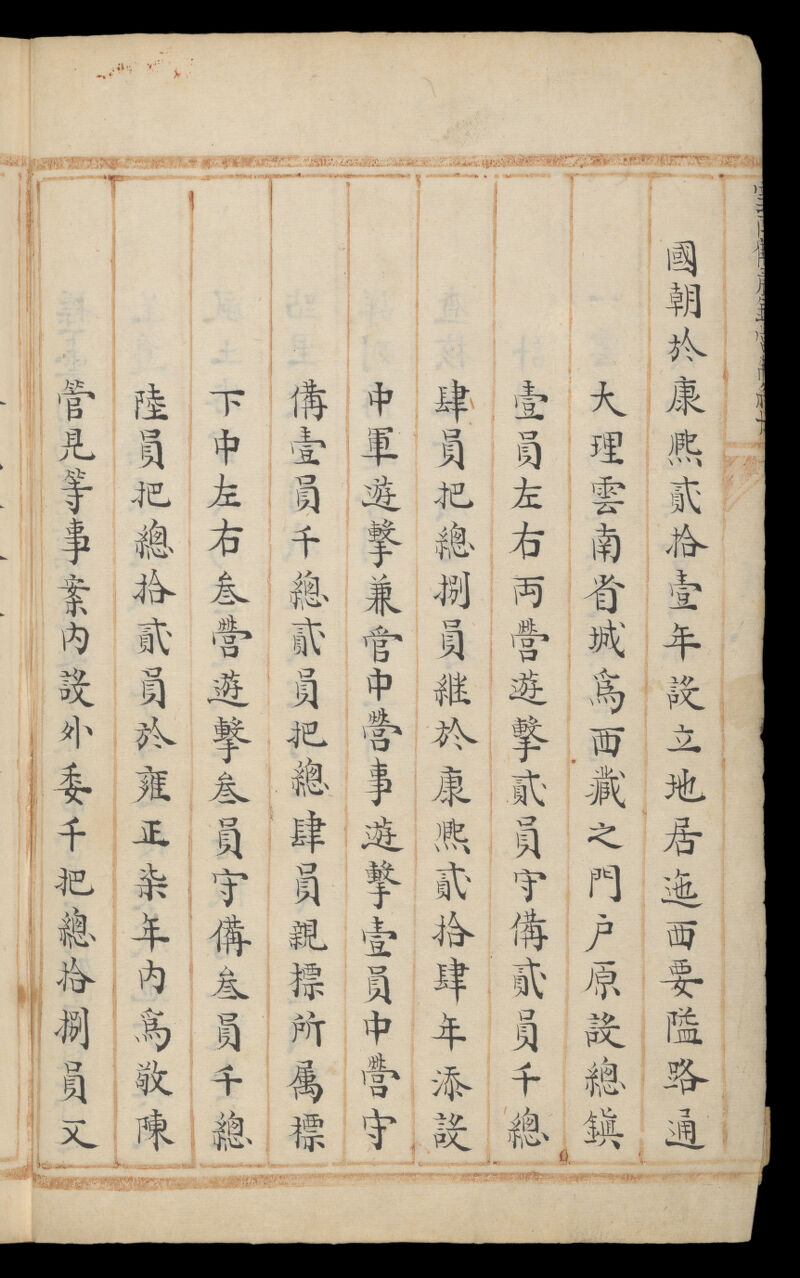 國朝於康熈貳拾壹年設立地居迤西要隘路通
大理雲南省城爲西藏之門户原設總鎮
壹員左右両營遊擊貳員守備貳員千總
肆員把總捌員継於康熈貳拾肆年添設
中軍遊擊兼管中營事遊擊壹員中營守
備壹員千總貳員把總肆員親標所属標
下中左右叁營遊擊叁員守備叁員千總
陸員把總拾貳員於雍正柒年内爲敬陳
管見等事案内設外委千把總拾捌員又